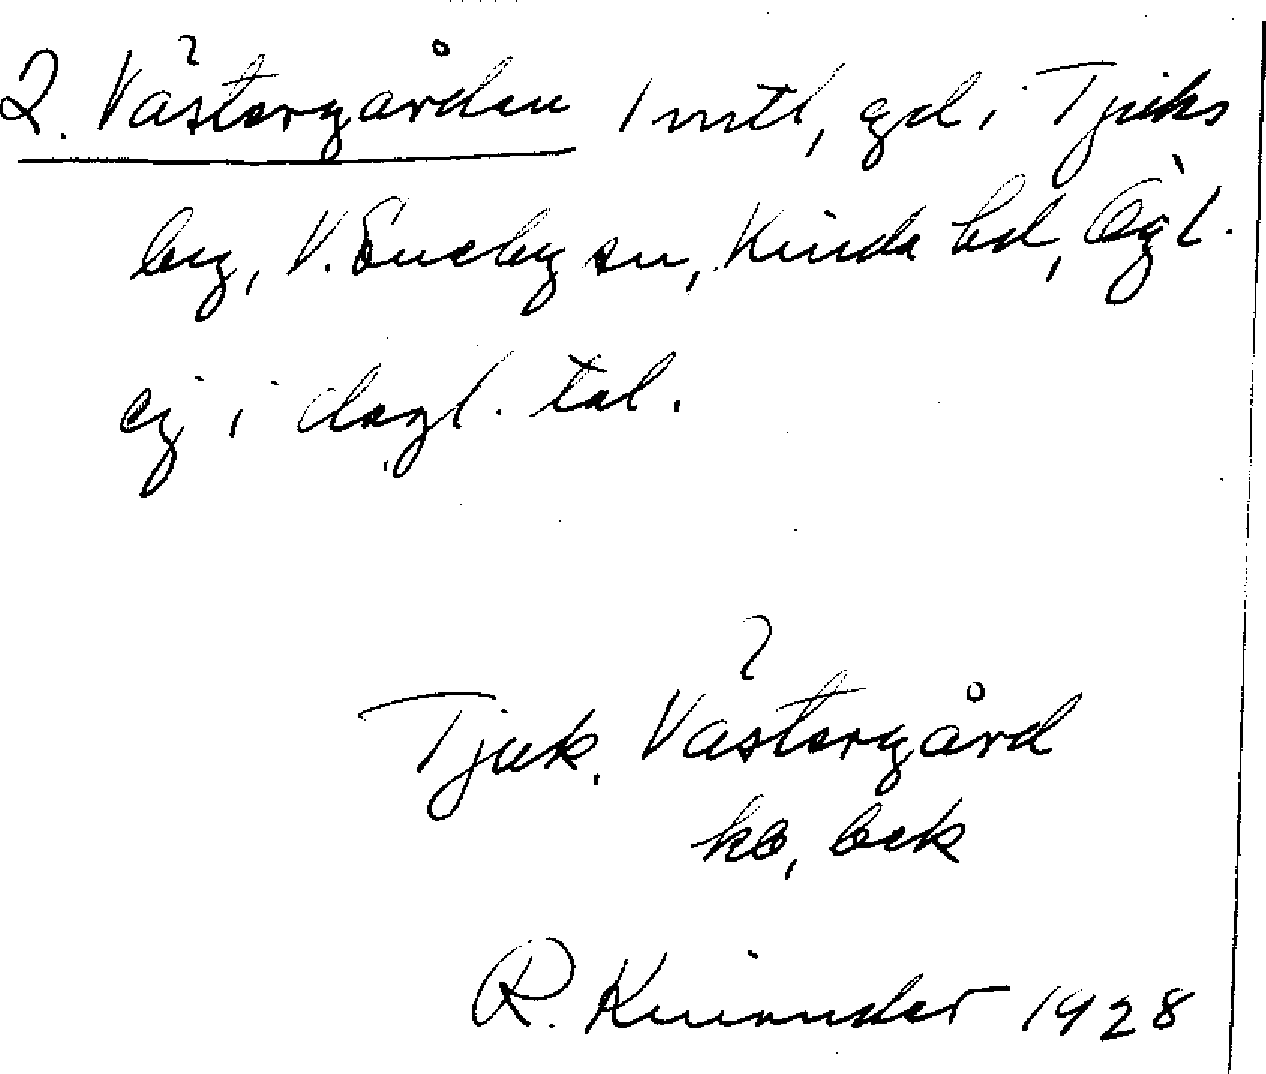 2. Västergården 1 mtl, gd i Tjuks
by, V. Eneby sn, Kinda hd, Ögl.
ej i dagl. tal.
Tjuk. Västergård
kb, bek
R. Kinander 1928